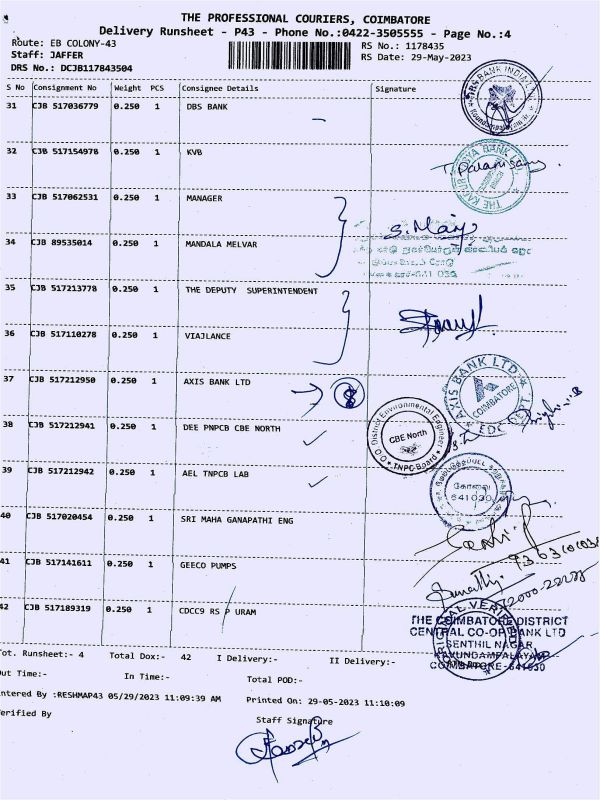 THE PROFESSIONAL COURIERS, COIMBATORE
Delivery Runsheet - P43 - Phone No.:0422-3505555 - Page No.:4
Route: EB COLONY-43
RS No.: 1178435
Staff: JAFFER
RS Date: 29-May-2023
DRS No.: DCJB117843504
S No Consignment No Weight PCS Consignee Details Signature
31 CJB 517036779 0.250 1 DBS BANK
DBS BANK INDIA
32 CJB 517154978 0.250 1 KVB
T. Palanisamy
33 CJB 517062531 0.250 1 MANAGER
S. Mary
34 CJB 89535014 0.250 1 MANDALA MELVAR
35 CJB 517213778 0.250 1 THE DEPUTY SUPERINTENDENT
36 CJB 517110278 0.250 1 VIAJLANCE
37 CJB 517212950 0.250 1 AXIS BANK LTD
AXIS BANK LTD
COIMBATORE
38 CJB 517212941 0.250 1 DEE PNPCB CBE NORTH
O/O District Environmental Engineer
CBE North
TNPC Board
39 CJB 517212942 0.250 1 AEL TNPCB LAB
கோவை
641030
40 CJB 517020454 0.250 1 SRI MAHA GANAPATHI ENG
41 CJB 517141611 0.250 1 GEECO PUMPS
42 CJB 517189319 0.250 1 CDCC9 RS P URAM
THE COIMBATORE DISTRICT
CENTRAL CO-OP BANK LTD
SENTHIL NAGAR
KAVUNDAMPALAYAM
COIMBATORE-641030
Tot. Runsheet:- 4 Total Dox:- 42 I Delivery:- II Delivery:-
Out Time:- In Time:- Total POD:-
Entered By :RESHMAP43 05/29/2023 11:09:39 AM Printed On: 29-05-2023 11:10:09
Verified By
Staff Signature